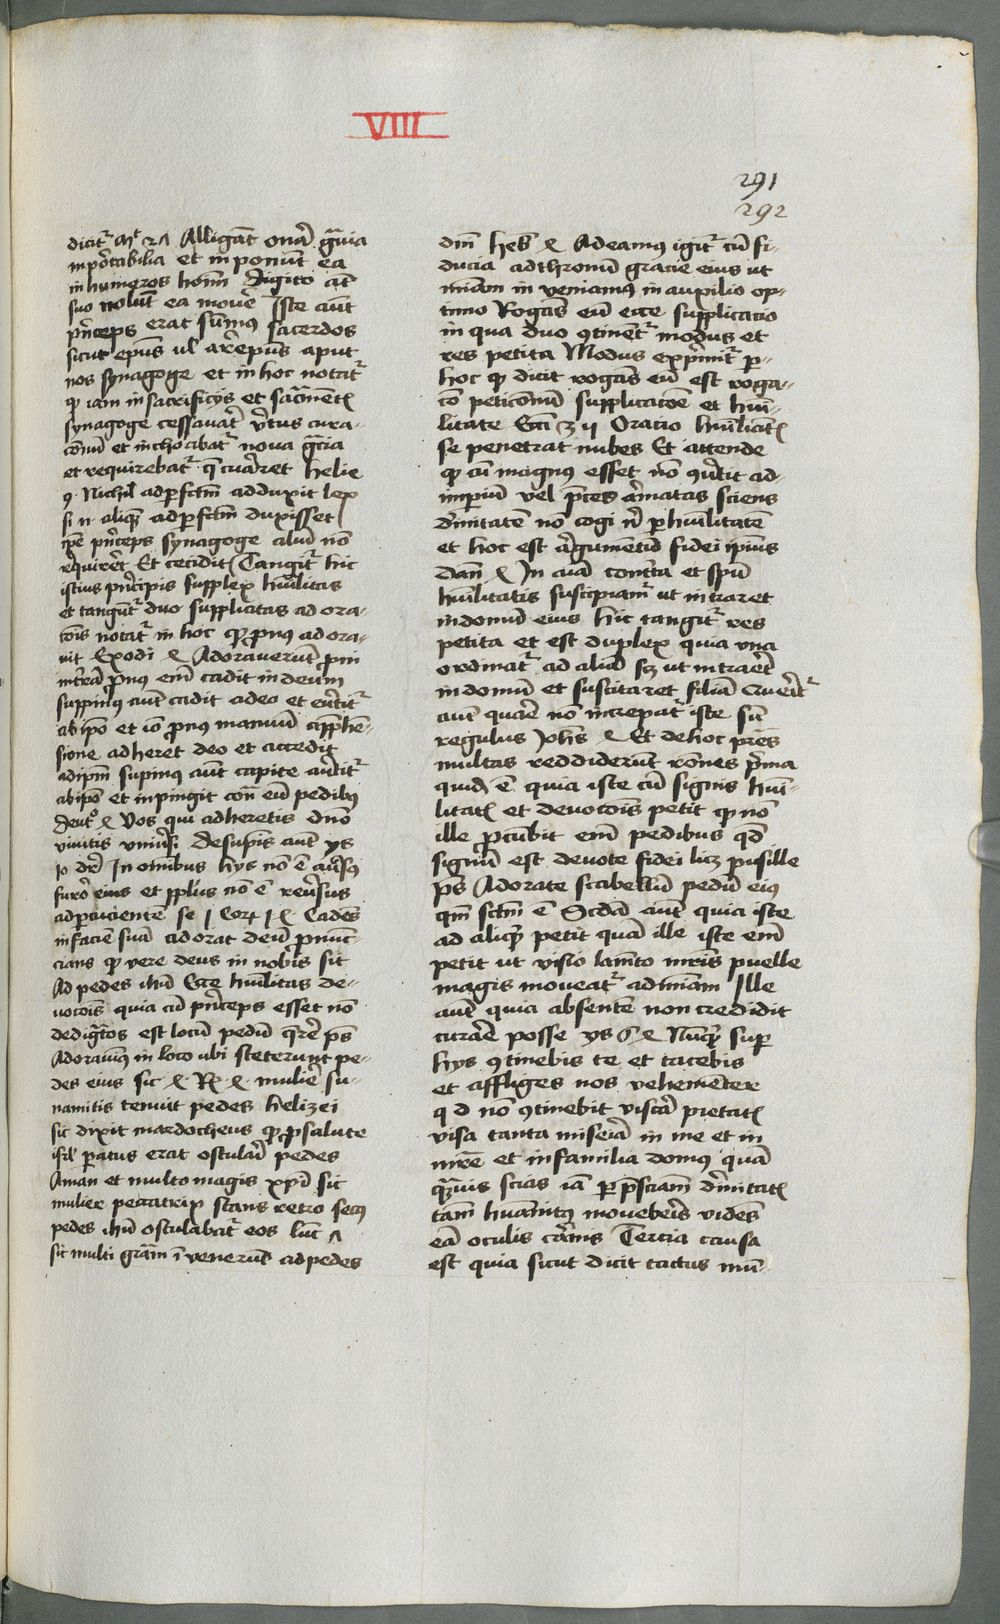 VIII
291
292
dicit᷑ Mt 23 Alligāt oneā gᷓuia
inportabilia et inponūt ea
in humeros hoīm digito aūt
suo nolūt ea mouē Iste aūt
pⁱnceps erat sūmus sacerdos
sicut epūs ul arēpūs aput
nos synagoge et in hoc notat᷑
qͥ iam in sacrificijs et sacͣment᷒
synagoge cessauat᷑ vͥtus cura-
cōnū et inchoabat᷑ noua gͣcia
et requirebat᷑ q̄ cuāret helie
9 Nichil ad perfctm̄ adduxit lex
si n̄ aliqͥ ad perfctm̄ duxisset
ipē pⁱnceps synagoge aliud nō
reqͥreret Et cecidit Tangit᷑ hic
istius pⁱncipis supplex hūilitas
et tangūt᷑ duo supplicitas ad ora-
cōis notat᷑ in hoc qͥ pnus adora-
uit Exodi x Adorauerūt pni
in terā pnus em̄ cadit in deum
suppinus aūt cadit adeo et eūtit᷑
ab ipō et iō pnus manuū appͥhē-
sione adheret deo et accedit
ad ipm̄ supinus aūt capite aūtit᷑
ab ipō et inpingit con̄ eū pedibus
deutͦ x Vos qui adheretis dn̄o
viuitis vniūsi desupīs aūt ys
io dr̄ In omībus hys nō ē aūsus
furor eius et pplūs nō ē reūsus
ad percucientē se I Cor I x Cadēs
in faciē suā adorat deū pnūc-
cians qͥ vere deus in nobis sit
Ad pedes ihū Ecce hūilitas de-
uocōis quia cū pⁱnceps esset nō
dedigͣtus est locū pedū qͥrē ps̄
Adorauimus in loco ubi steterunt pe-
des eius sic x Rx x mulier su-
namitis tenuit pedes helizei
sic dixit mardocheus qͥ p salute
isrl̄ paratus erat osculari pedes
Aman et multo magis xp̄i sic
mulier peccatrix stans retro secus
pedes ihū osculabat᷑ eos luc̄
sic multi grām īvenerūt ad pedes
dm̄ heb̄ x Adeamus igit᷑ cū fi-
ducia ad thronū gracie eius ut
mīam in veniamus in auxilio op-
timo Rogās eū ecce supplicacio
in qua duo 9tinent᷑ modus et
res petita Modus expⁱmit᷑ per
hoc qͥ dicit rogās eū est roga-
cō peticōnū supplicacōe et hūi-
litate Ecci 3 ij Oracio hūilicit᷒
se penetrat nubes Et attende
qͥ cū magnus esset nō 9ūtit ad
imperiū vel pͥces armatas sciens
diuinitatē nō cogi nͥ per hūilitatē
et hoc est argumētū fidei ipīus
Dan̄ x In aīa contrita et spū
hūilitatis suscipiam᷑ ut intraret
in domū eius hic tangit᷑ res
petita et est duplex quia vna
ordinat᷑ ad aliā scz ut intraēt
in domū et suscitaret filiā Querit᷑
aūt quare nō increpat᷑ iste sic̄
regulus Joh̄is x Et de hoc pres
multas reddiderūt rōnes pⁱma
quid̄ ē quia iste cū signis hūi-
litat᷒ et deuocōis petit qͥ nō
ille procūbit em̄ pedibus qd̄
signū est deuote fidei licz pusille
ps̄ Adorate scabellū pedū eius
qm̄ sctm̄ ē Scdā aūt quia iste
ad aliqͥ petit quā ille iste em̄
petit ut viso lamēto mr̄is puelle
magis moueat᷑ ad mīam Ille
aūt quia absentē non credidit
curare posse ys 6 x Nūqͥ super
hys 9tinebis te et tacebis
et affliges nos vehementer
q d nō 9tinebit viscera pietat᷒
visa tanta miseria in me et in
mr̄e et in familia domus quā
qͣuis scias iā per pͥsciam diuinitat᷒
tam̄ hūanitus mouebeīs vides
eā oculis carnis Tercia causa
est quia sicut dicit tactus mū-